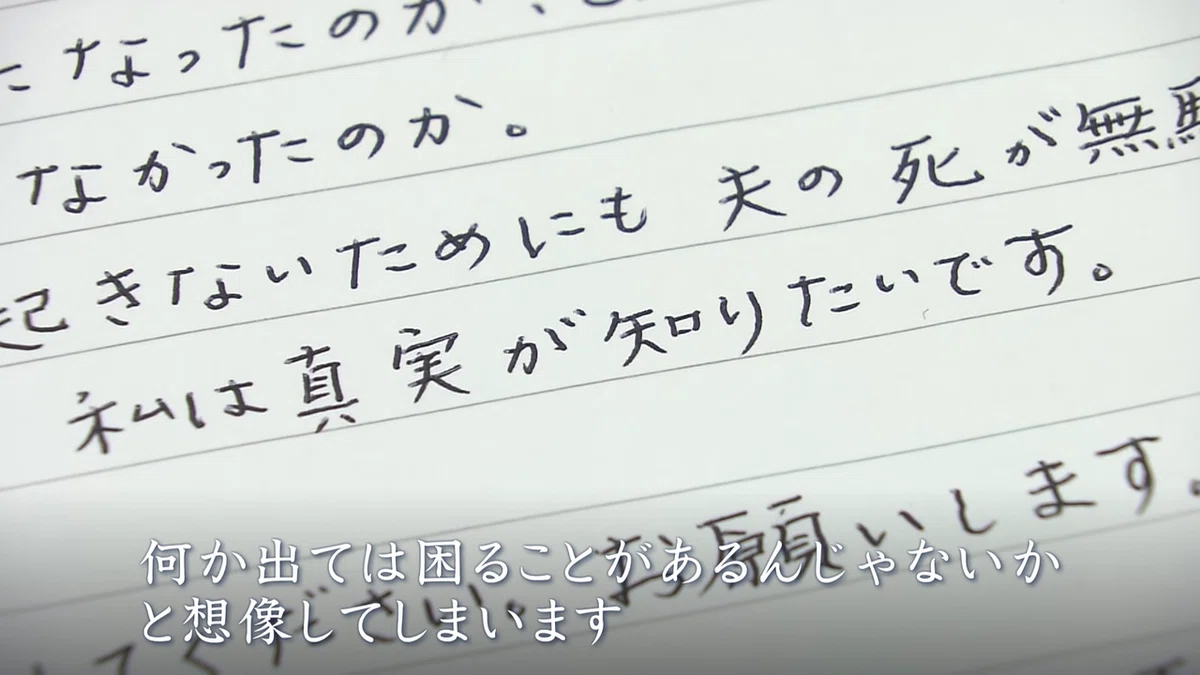 になったのか、
なかったのか。
起きないためにも 夫の死が無駄
私は真実が知りたいです。
てください。お願いします。
何か出ては困ることがあるんじゃないか
と想像してしまいます